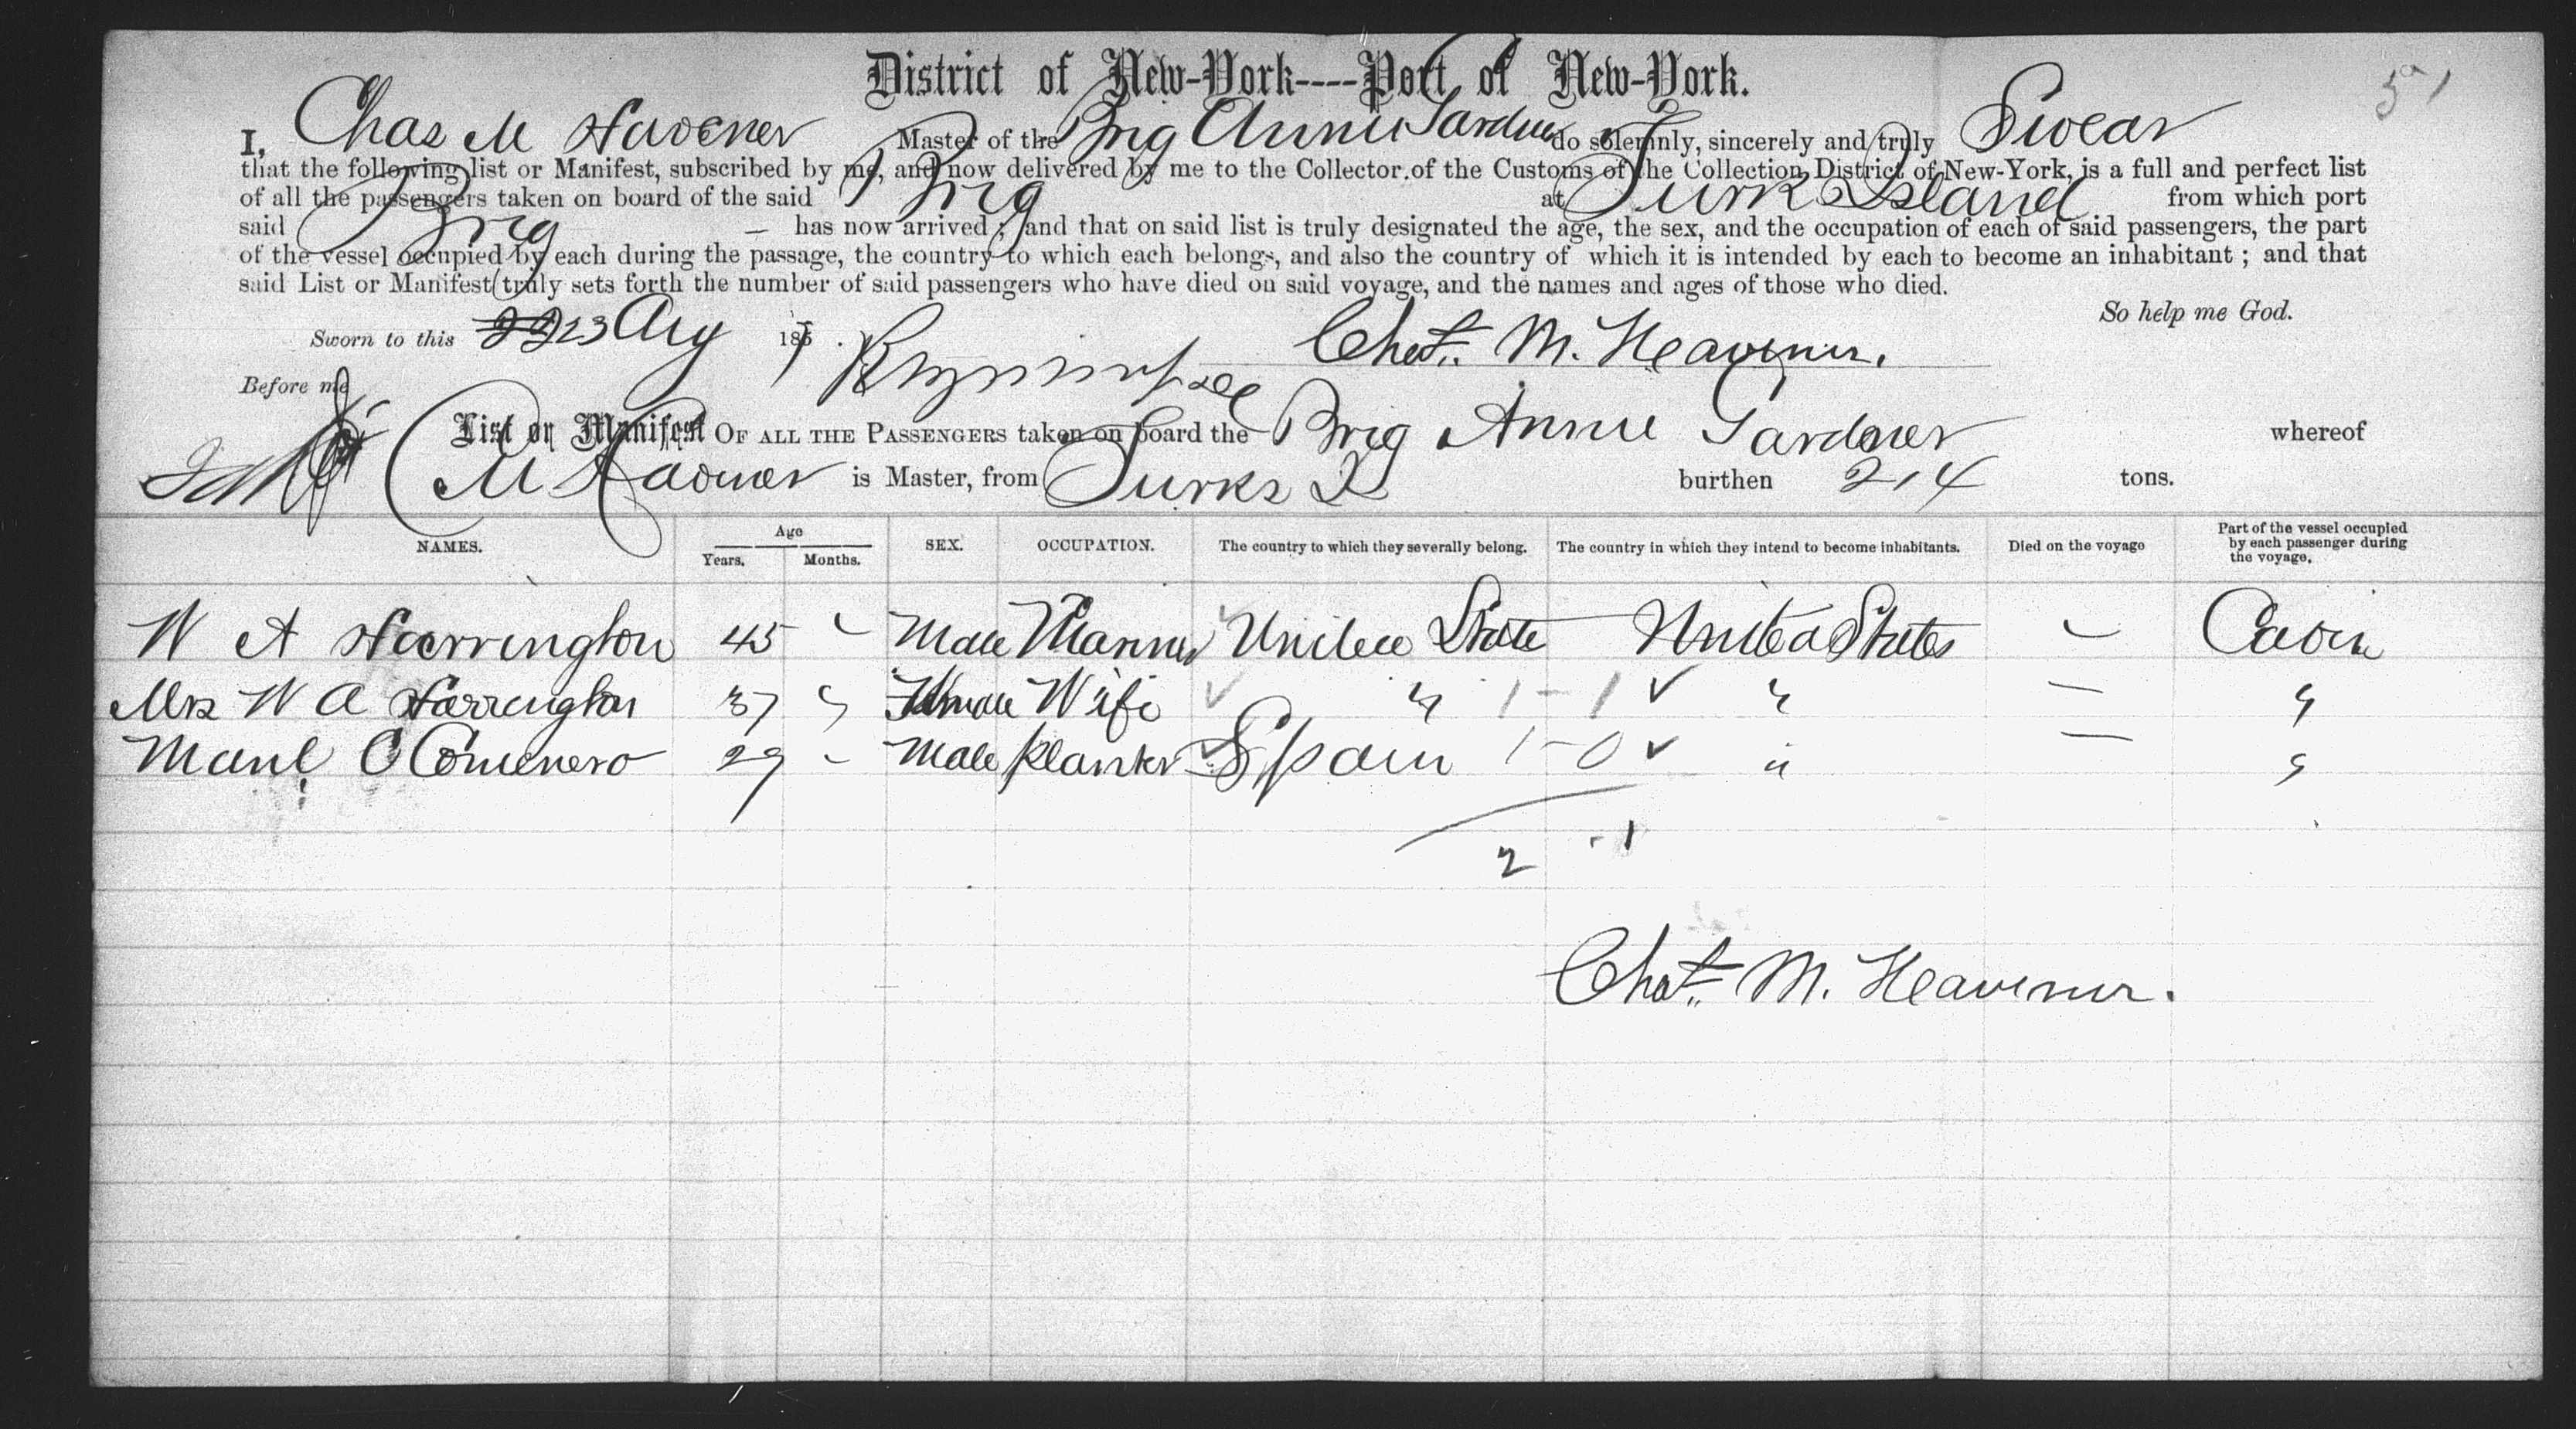 District of New-York----Port of New-York.
I, Chas M Havener Master of the Brig Annie Gardner do solemnly, sincerely and truly Swear
that the following list or Manifest, subscribed by me, and now delivered by me to the Collector of the Customs of the Collection District of New-York, is a full and perfect list
of all the passengers taken on board of the said Brig at Turks Island from which port
said Brig — has now arrived; and that on said list is truly designated the age, the sex, and the occupation of each of said passengers, the part
of the vessel occupied by each during the passage, the country to which each belongs, and also the country of which it is intended by each to become an inhabitant; and that
said List or Manifest truly sets forth the number of said passengers who have died on said voyage, and the names and ages of those who died.
So help me God.
Sworn to this 23 Aug 18 Chas. M. Heavener.
Before me
List or Manifest OF ALL THE PASSENGERS taken on board the Brig Annie Gardner whereof
C M Havener is Master, from Turks I burthen 214 tons.
NAMES. Age Years. Months. SEX. OCCUPATION. The country to which they severally belong. The country in which they intend to become inhabitants. Died on the voyage Part of the vessel occupied by each passenger during the voyage.
W A Harrington 45 - Male Mariner United State United States - Cabin
Mrs W A Harrington 37 " Female Wife " 1 - 1 " — "
Manl C Comenero 29 - Male Planter Spain 1 - 0 " — "
2 - 1
Chas. M. Heavener.